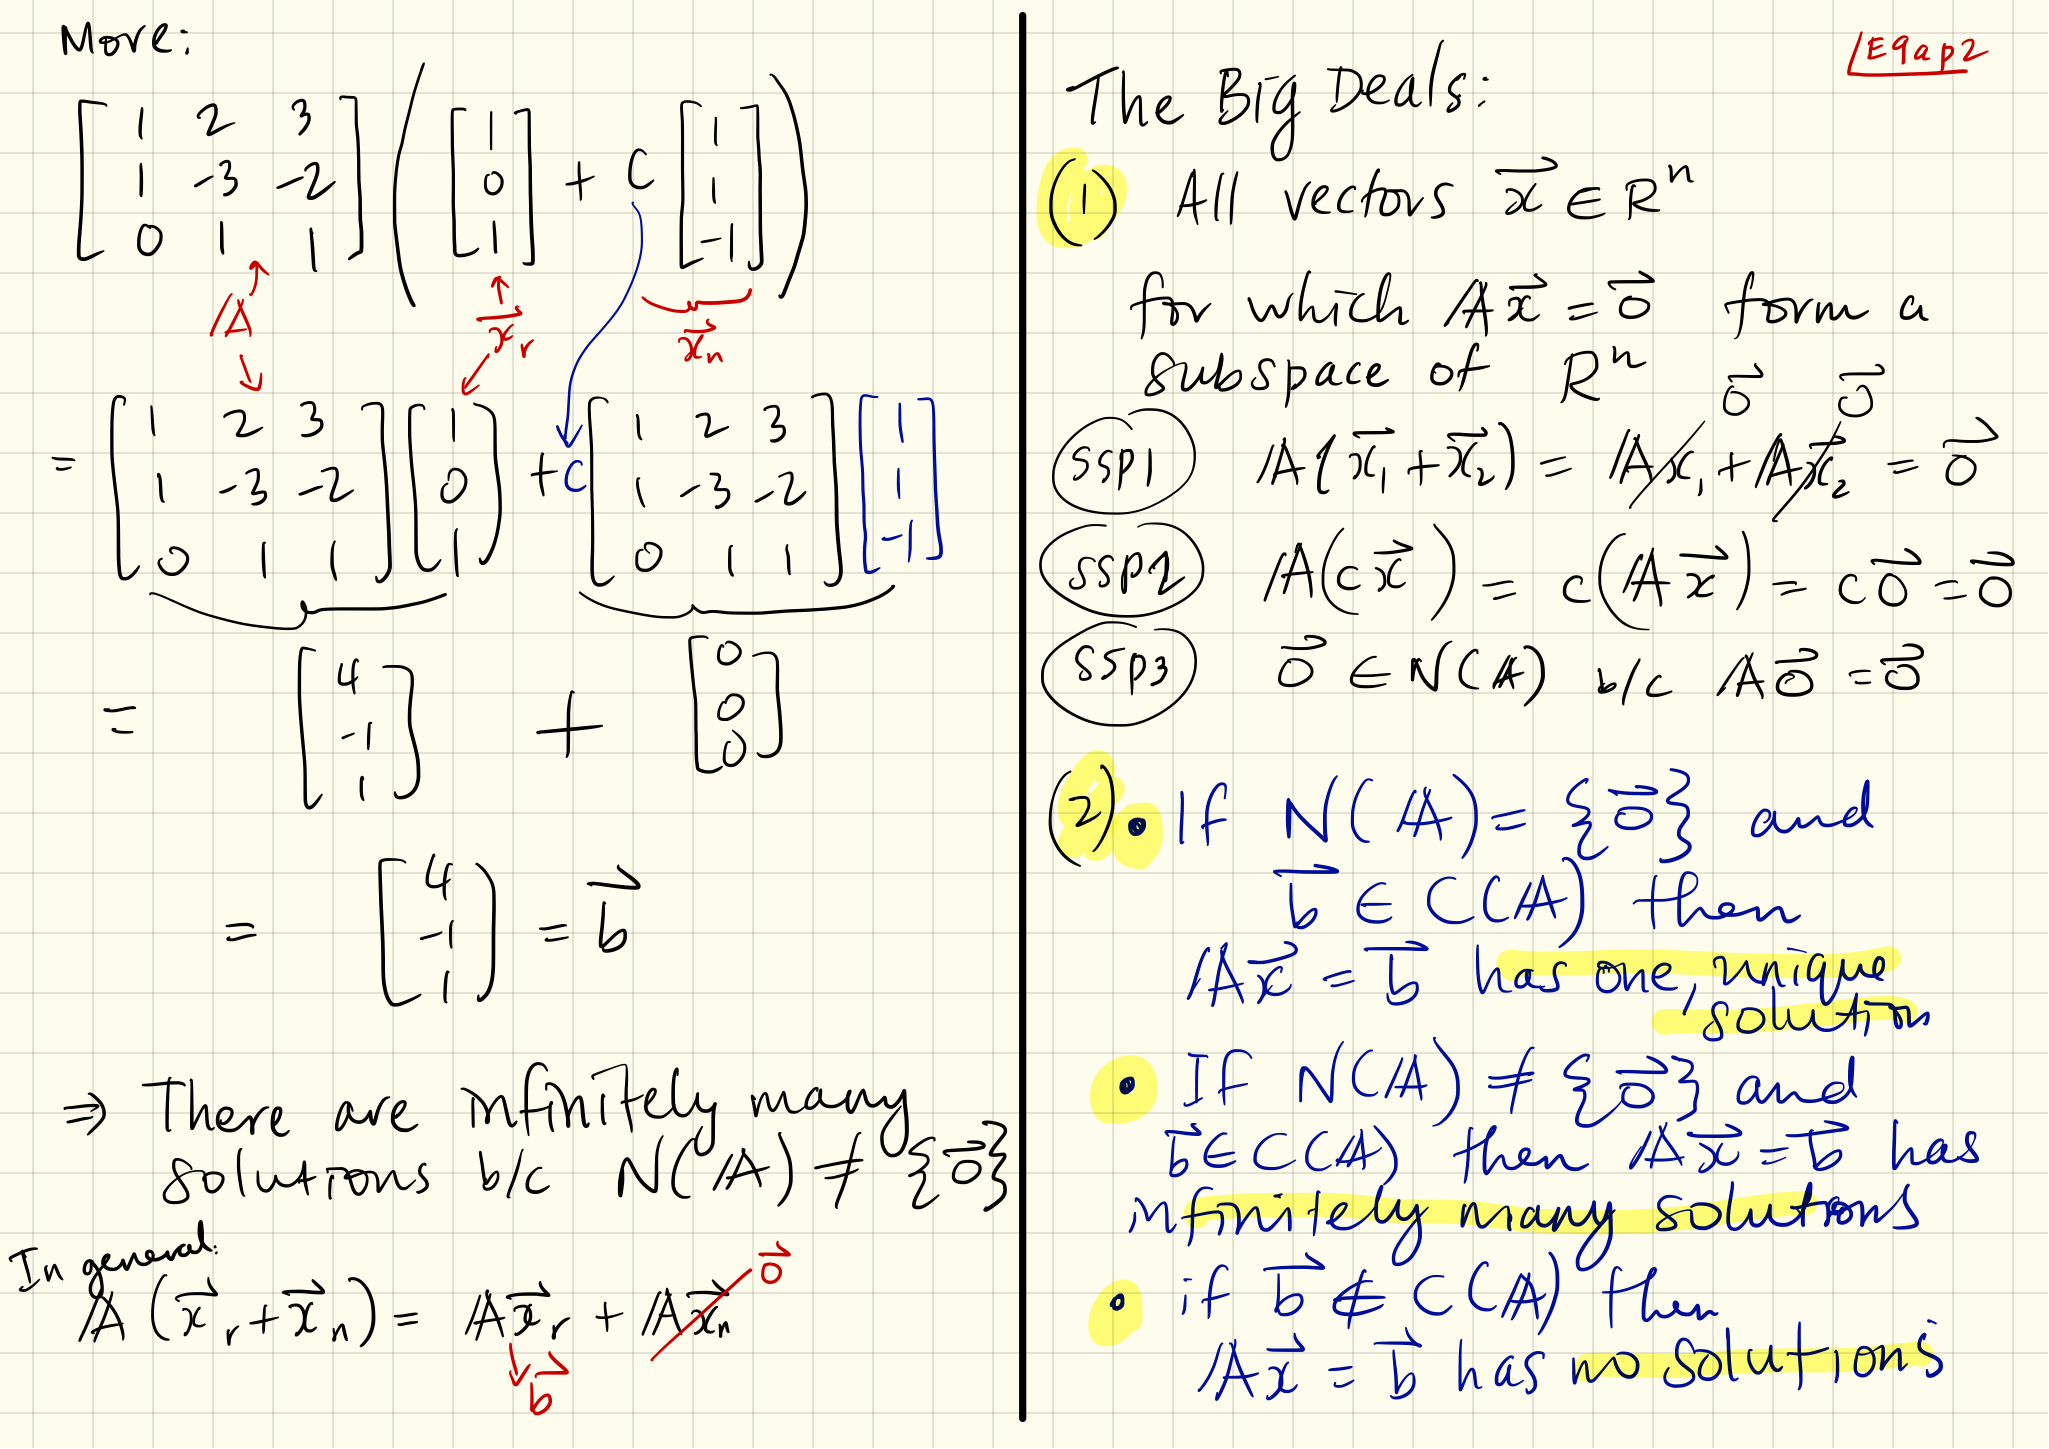 More:
[1 2 3; 1 -3 -2; 0 1 1] ([1; 0; 1] + C [1; 1; -1])
A x⃗r x⃗n
= [1 2 3; 1 -3 -2; 0 1 1] [1; 0; 1] + C [1 2 3; 1 -3 -2; 0 1 1] [1; 1; -1]
= [4; -1; 1] + [0; 0; 0]
= [4; -1; 1] = b⃗
⇒ There are infinitely many
solutions b/c N(A) ≠ {0⃗}
In general:
A (x⃗r + x⃗n) = Ax⃗r + Ax⃗n 0⃗
b⃗
E9ap2
The Big Deals:
(1) All vectors x⃗ ∈ Rⁿ
for which Ax⃗ = 0⃗ form a
subspace of Rⁿ
0⃗ 0⃗
SSP1 A(x⃗1 + x⃗2) = Ax⃗1 + Ax⃗2 = 0⃗
SSP2 A(cx⃗) = c(Ax⃗) = c0⃗ = 0⃗
SSP3 0⃗ ∈ N(A) b/c A0⃗ = 0⃗
(2) • If N(A) = {0⃗} and
b⃗ ∈ C(A) then
Ax⃗ = b⃗ has one, unique
solution
• If N(A) ≠ {0⃗} and
b⃗ ∈ C(A) then Ax⃗ = b⃗ has
infinitely many solutions
• if b⃗ ∉ C(A) then
Ax⃗ = b⃗ has no solutions